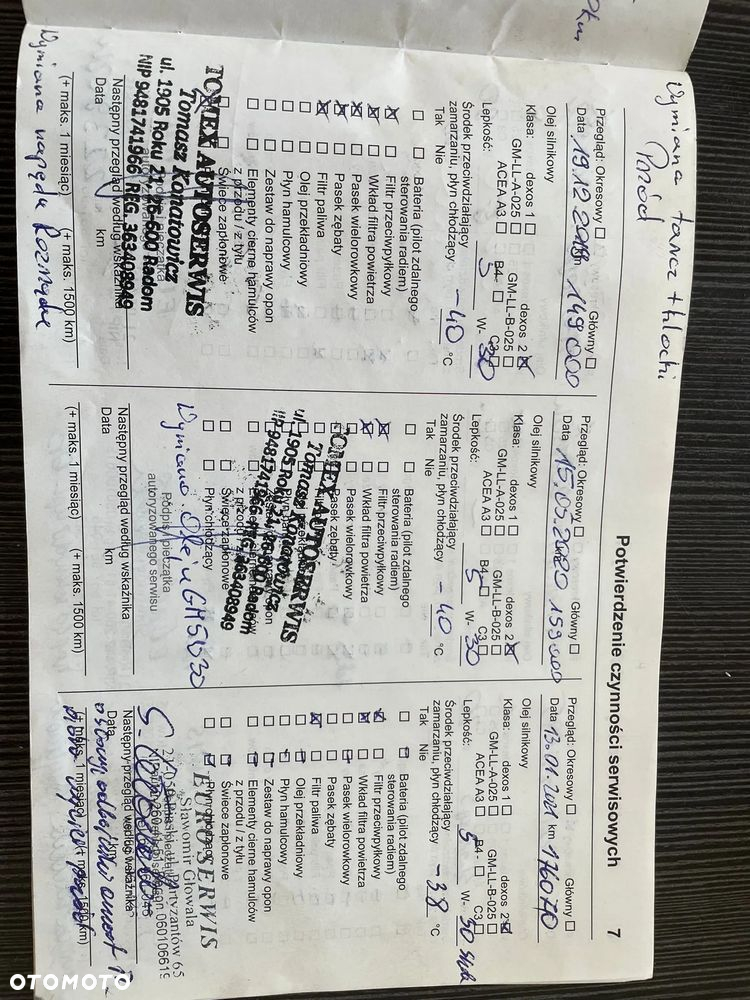 Potwierdzenie czynności serwisowych
7
Wymiana tarcz + klocki
Przód
Przegląd: Okresowy Główny
Data 19.12.2018 km 149000
Olej silnikowy
Klasa: dexos 1 dexos 2
GM-LL-A-025 GM-LL-B-025
ACEA A3 B4- C3
Lepkość: 5 W- 30
Środek przeciwdziałający
zamarzaniu, płyn chłodzący -40 °C
Tak Nie
Bateria (pilot zdalnego
sterowania radiem)
Filtr przeciwpyłkowy
Wkład filtra powietrza
Pasek wielorowkowy
Pasek zębaty
Filtr paliwa
Olej przekładniowy
Płyn hamulcowy
Zestaw do naprawy opon
Elementy cierne hamulców
z przodu / z tyłu
Świece zapłonowe
TOMEX AUTOSERWIS
Tomasz Komarowicz
ul. 1905 Roku 21, 26-600 Radom
NIP 9481741966 REG. 363408949
Następny przegląd według wskaźnika
Data km
(+ maks. 1 miesiąc) (+ maks. 1500 km)
Wymiana napędu Rozrządu
Przegląd: Okresowy Główny
Data 15.05.2020 159000
Olej silnikowy
Klasa: dexos 1 dexos 2
GM-LL-A-025 GM-LL-B-025
ACEA A3 B4- C3
Lepkość: 5 W- 30
Środek przeciwdziałający
zamarzaniu, płyn chłodzący -40 °C
Tak Nie
Bateria (pilot zdalnego
sterowania radiem)
Filtr przeciwpyłkowy
Wkład filtra powietrza
Pasek wielorowkowy
Pasek zębaty
TOMEX AUTOSERWIS
Tomasz Komarowicz
ul. 1905 Roku 21, 26-600 Radom
NIP 9481741966 REG. 363408949
z przodu / z tyłu
Świece zapłonowe
Płyn chłodzący
Wymiana Oleju GM 5W30
Podpis i pieczątka
autoryzowanego serwisu
Następny przegląd według wskaźnika
Data km
(+ maks. 1 miesiąc) (+ maks. 1500 km)
Przegląd: Okresowy Główny
Data 13.01.2021 km 176070
Olej silnikowy
Klasa: dexos 1 dexos 2
GM-LL-A-025 GM-LL-B-025
ACEA A3 B4- C3
Lepkość: 5 W- 30
Środek przeciwdziałający
zamarzaniu, płyn chłodzący -38 °C
Tak Nie
Bateria (pilot zdalnego
sterowania radiem)
Filtr przeciwpyłkowy
Wkład filtra powietrza
Pasek wielorowkowy
Pasek zębaty
Filtr paliwa
Olej przekładniowy
Płyn hamulcowy
Zestaw do naprawy opon
Elementy cierne hamulców
z przodu / z tyłu
Świece zapłonowe
EUROSERWIS
Sławomir Głowala
Partyzantów 65
Regon 060106619
Następny przegląd według wskaźnika
Data
OTOMOTO